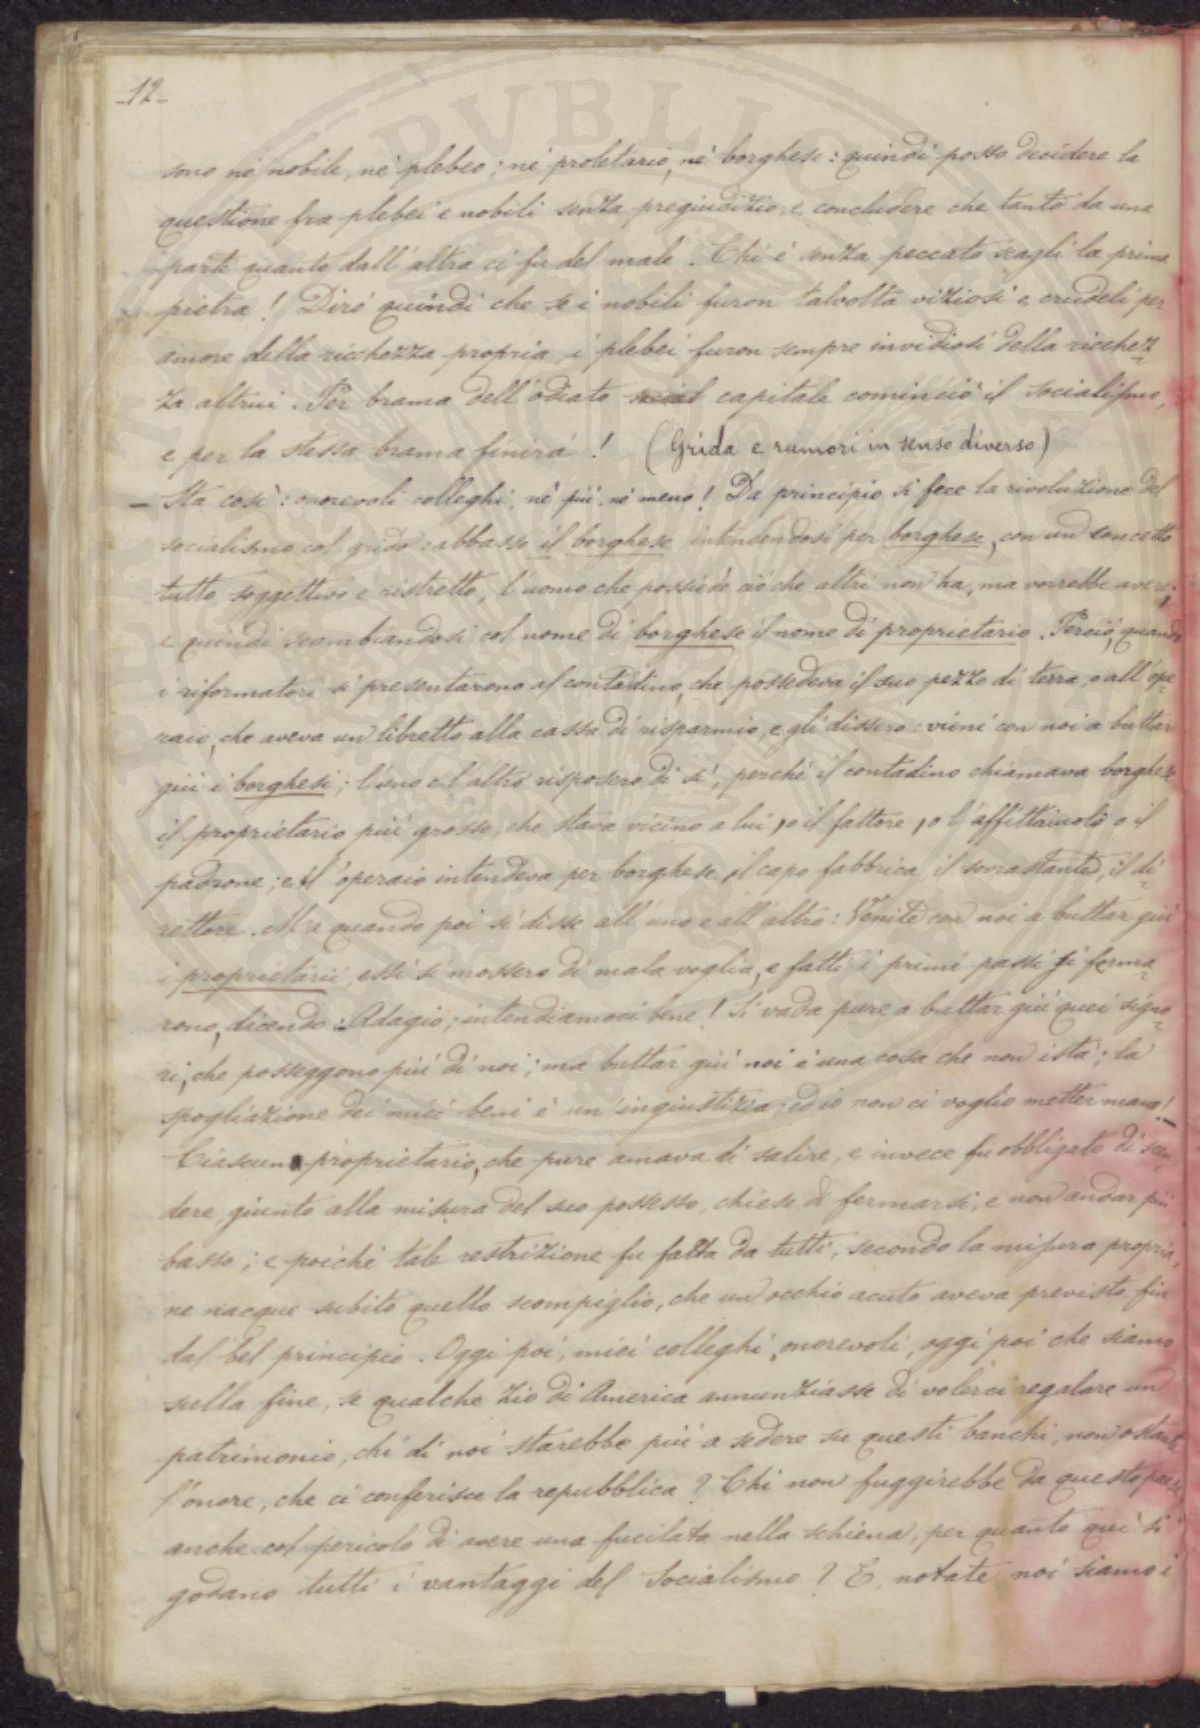 -12-
sono né nobile, né plebeo; né proletario, né borghese: quindi posso decidere la
questione fra plebei e nobili senza pregiudizio, e concludere che tanto da una
parte quanto dall'altra ci fu del male. Chi è senza peccato scagli la prima
pietra! Dirò quindi che se i nobili furon talvolta viziosi e crudeli per
amore della ricchezza propria, i plebei furon sempre invidiosi della ricchez=
za altrui. Per brama dell'odiato capitale cominciò il socialismo,
e per la stessa brama finirà! (Grida e rumori in senso diverso)
— Sta così: onorevoli colleghi, né più, né meno! Da principio si fece la rivoluzione del
socialismo col grido: abbasso il borghese intendendosi per borghese, con un concetto
tutto soggettivo e ristretto, l'uomo che possiede ciò che altri non ha, ma vorrebbe avere;
e quindi scambiandosi col nome di borghese il nome di proprietario. Perciò, quando
i riformatori si presentarono al contadino, che possedeva il suo pezzo di terra, o all'ope=
raio, che aveva un libretto alla cassa di risparmio, e gli dissero: vieni con noi a buttar
giù i borghesi; l'uno e l'altro risposero di sì, perché il contadino chiamava borghese
il proprietario più grosso, che stava vicino a lui, o il fattore, o l'affittaiuolo o il
padrone; e l'operaio intendeva per borghese il capo fabbrica, il sovrastante, il di=
rettore. Ma quando poi si disse all'uno e all'altro: Venite con noi a buttar giù
i proprietarii, essi si mossero di mala voglia, e fatti i primi passi si ferma=
rono, dicendo: Adagio; intendiamoci bene! Si vada pure a buttar giù quei signo=
ri, che posseggono più di noi; ma buttar giù noi è una cosa che non istà; la
spogliazione dei miei beni è un'ingiustizia; ed io non ci voglio metter mano! —
Ciascun proprietario, che pure amava di salire, e invece fu obbligato di scen=
dere, giunto alla misura del suo possesso, chiese di fermarsi, e non andar più
basso; e poiché tale restrizione fu fatta da tutti, secondo la misura propria,
ne nacque subito quello scompiglio, che un occhio acuto aveva previsto fin
dal bel principio. Oggi poi, miei colleghi onorevoli, oggi poi che siamo
sulla fine, se qualche zio di America annunziasse di volerci regalare un
patrimonio, chi di noi starebbe più a sedere su questi banchi, non ostante
l'onore, che ci conferisce la repubblica? Chi non fuggirebbe da questo paese,
anche col pericolo di avere una fucilata nella schiena, per quanto qui si
godano tutti i vantaggi del Socialismo? E, notate noi siamo i